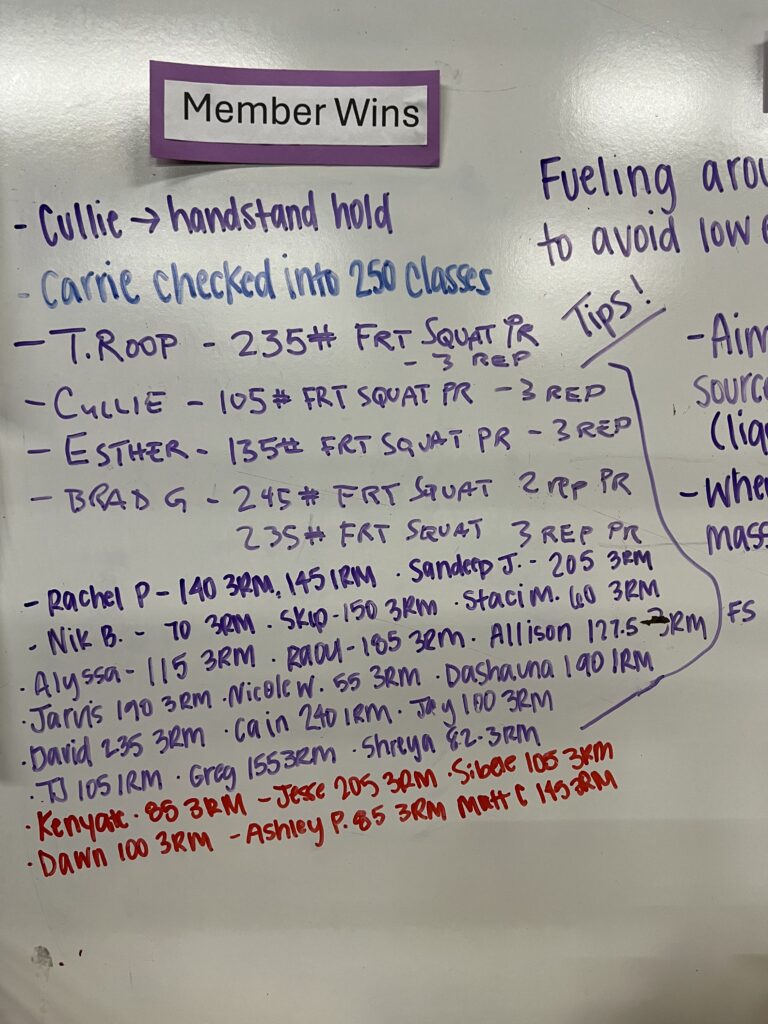 Member Wins
- Cullie → handstand hold
- Carrie checked into 250 classes
- T. ROOP - 235# FRT SQUAT PR
- 3 REP
- CULLIE - 105# FRT SQUAT PR - 3 REP
- ESTHER - 135# FRT SQUAT PR - 3 REP
- BRAD G - 245# FRT SQUAT 2 rep PR
235# FRT SQUAT 3 REP PR
- Rachel P - 140 3RM, 145 1RM · Sandeep J. - 205 3RM
· Nik B. - 70 3RM · Skip - 150 3RM · Staci M. 60 3RM
· Alyssa - 115 3RM · Raoul - 185 3RM · Allison 127.5 3RM
· Jarvis 190 3RM · Nicole W. 55 3RM · Dashauna 190 1RM
· David 235 3RM · Cain 240 1RM · Jay 100 3RM
· TJ 105 1RM · Greg 155 3RM · Shreya 82. 3RM
· Kenyatc · 85 3RM - Jesse 205 3RM · Sibele 105 3RM
· Dawn 100 3RM - Ashley P. 85 3RM Matt C 145 3RM
FS
Fueling arou
to avoid low e
Tips!
- Aim
source
(liq
- When
mass